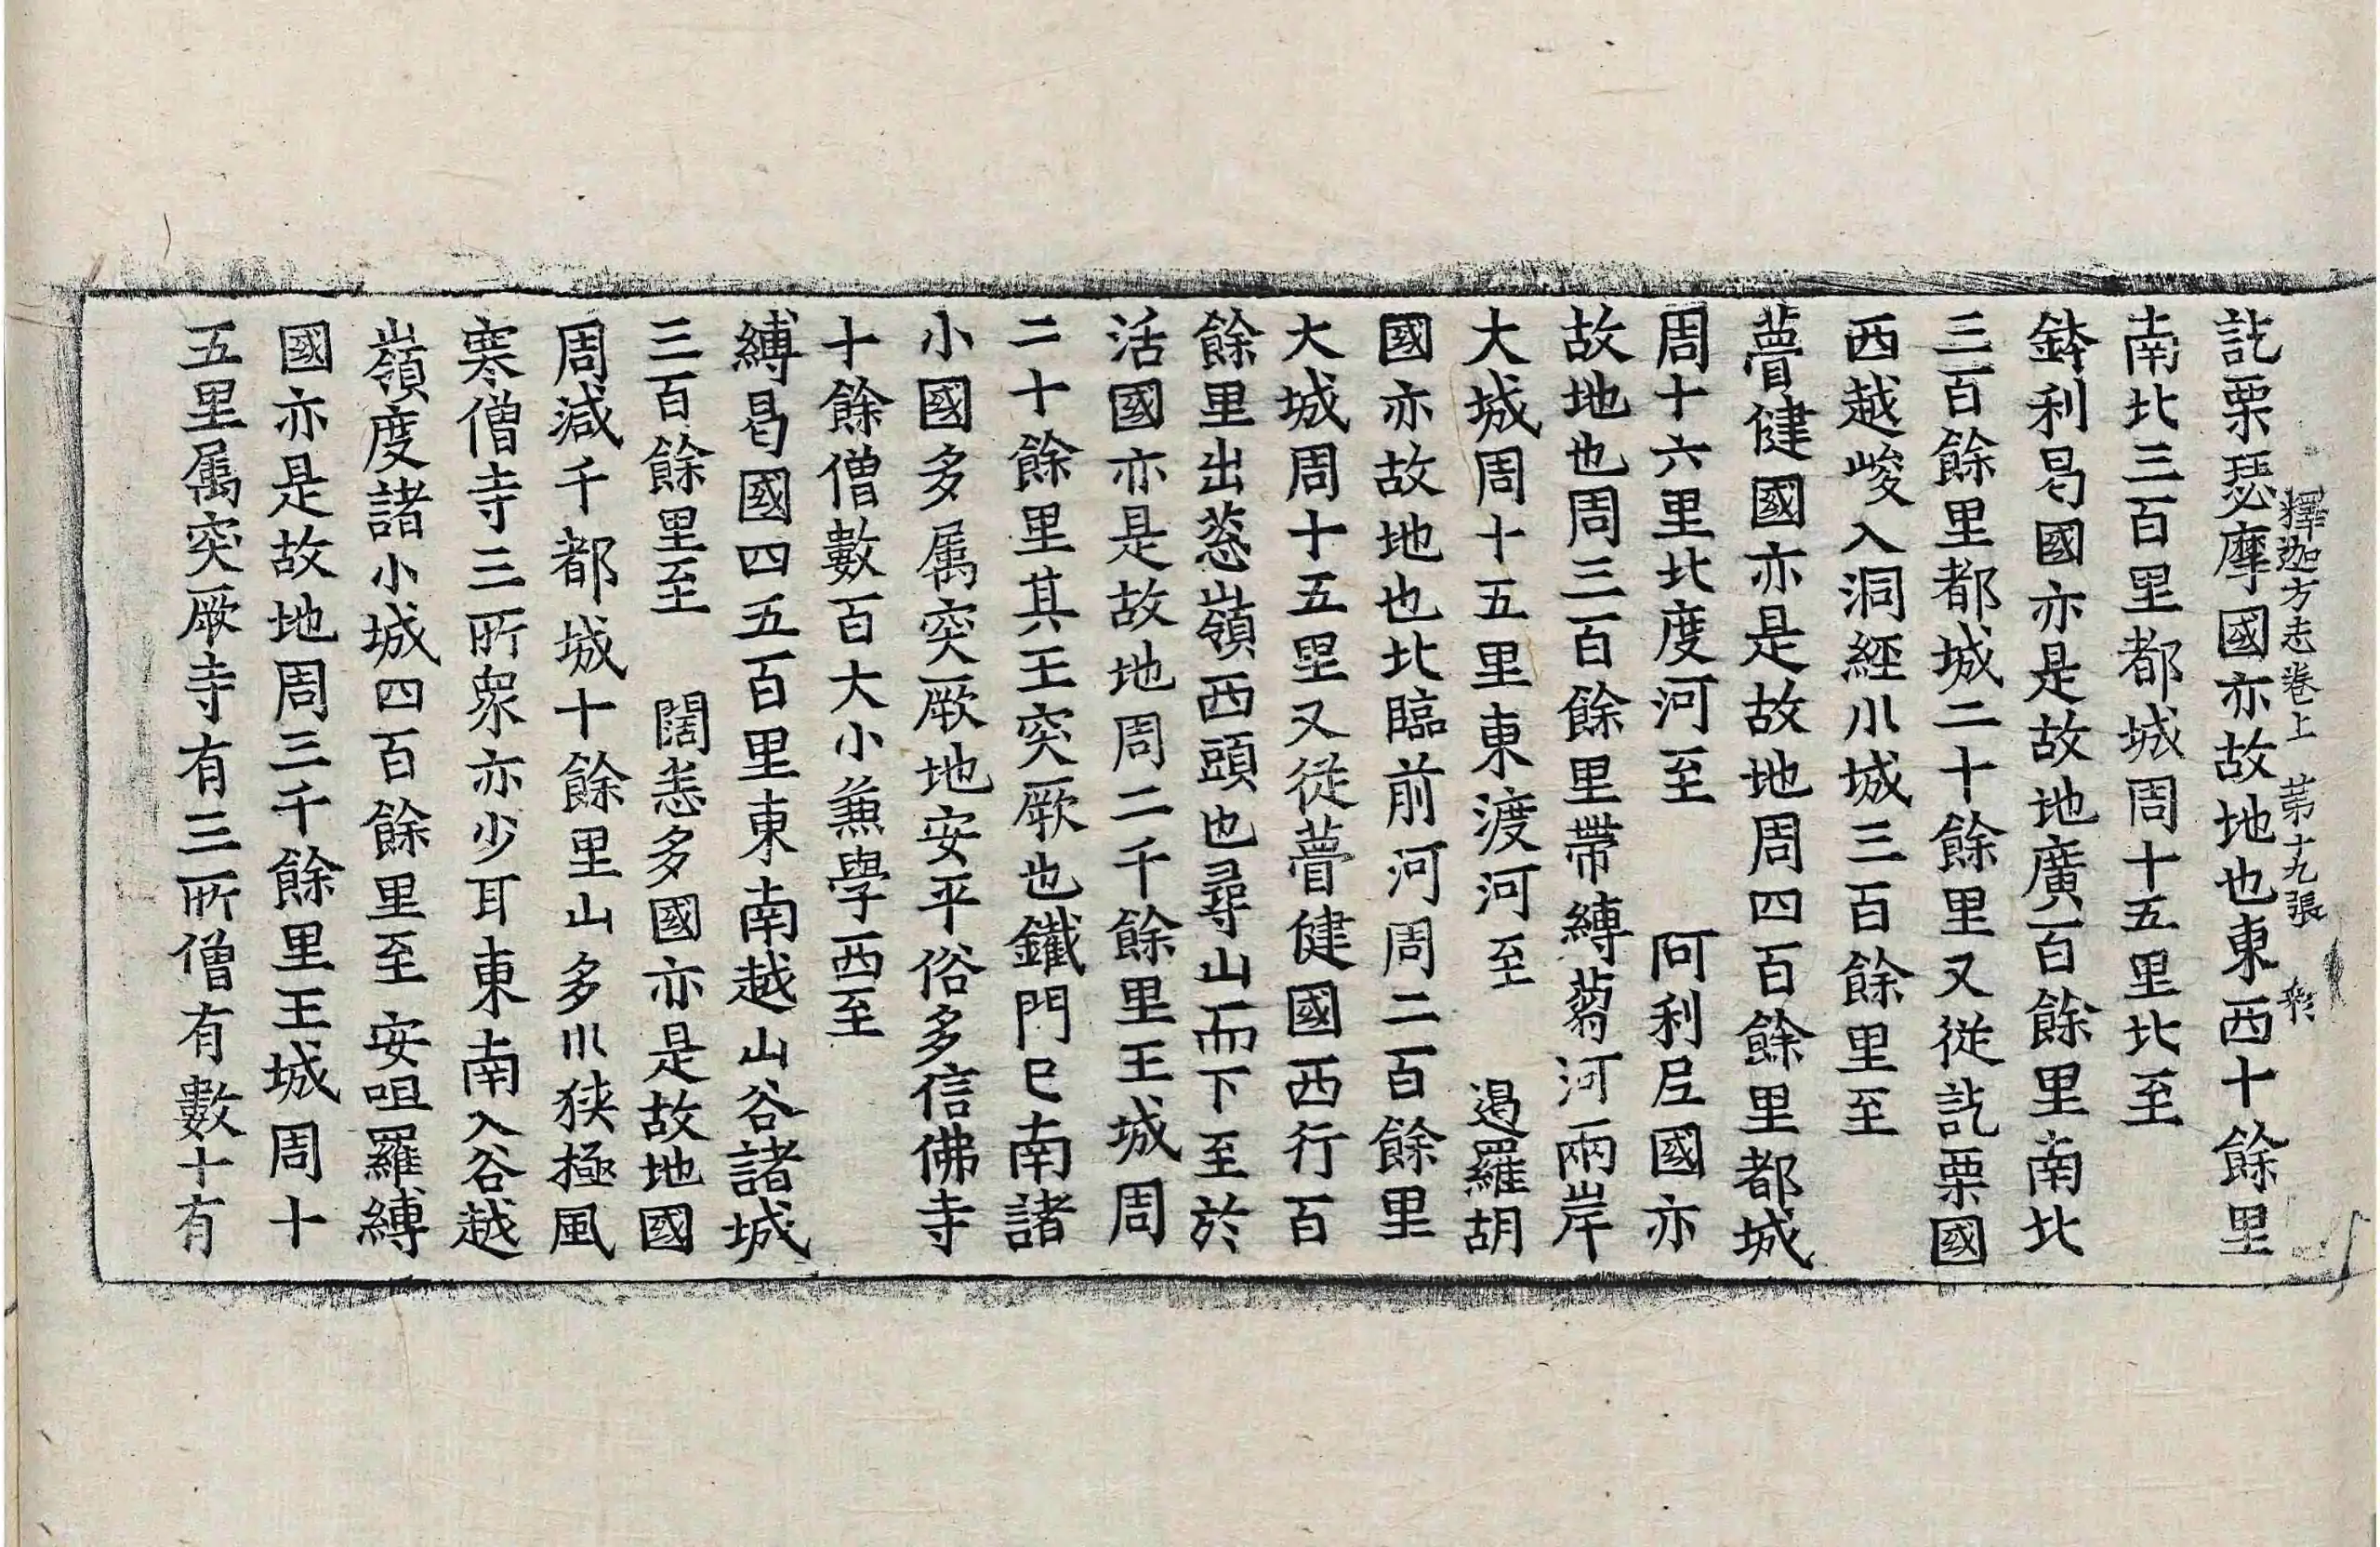 訖栗瑟摩國亦故地也東西十餘里
釋迦方志卷上 第十九張 彩
南北三百里都城周十五里北至
鉢利曷國亦是故地廣百餘里南北
三百餘里都城二十餘里又從訖栗國
西越峻入洞經小城三百餘里至
瞢健國亦是故地周四百餘里都城
周十六里北度河至 阿利尼國亦
故地也周三百餘里帶縛蒭河兩岸
大城周十五里東渡河至 遏羅胡
國亦故地也北臨前河周二百餘里
大城周十五里又從瞢健國西行百
餘里出葱嶺西頭也尋山而下至於
活國亦是故地周二千餘里王城周
二十餘里其王突厥也鐵門已南諸
小國多属突厥地安平俗多信佛寺
十餘僧數百大小兼學西至
縛曷國四五百里東南越山谷諸城
三百餘里至 闊悉多國亦是故地國
周減千都城十餘里山多川狹極風
寒僧寺三所衆亦少耳東南入谷越
嶺度諸小城四百餘里至 安呾羅縛
國亦是故地周三千餘里王城周十
五里属突厥寺有三所僧有數十有